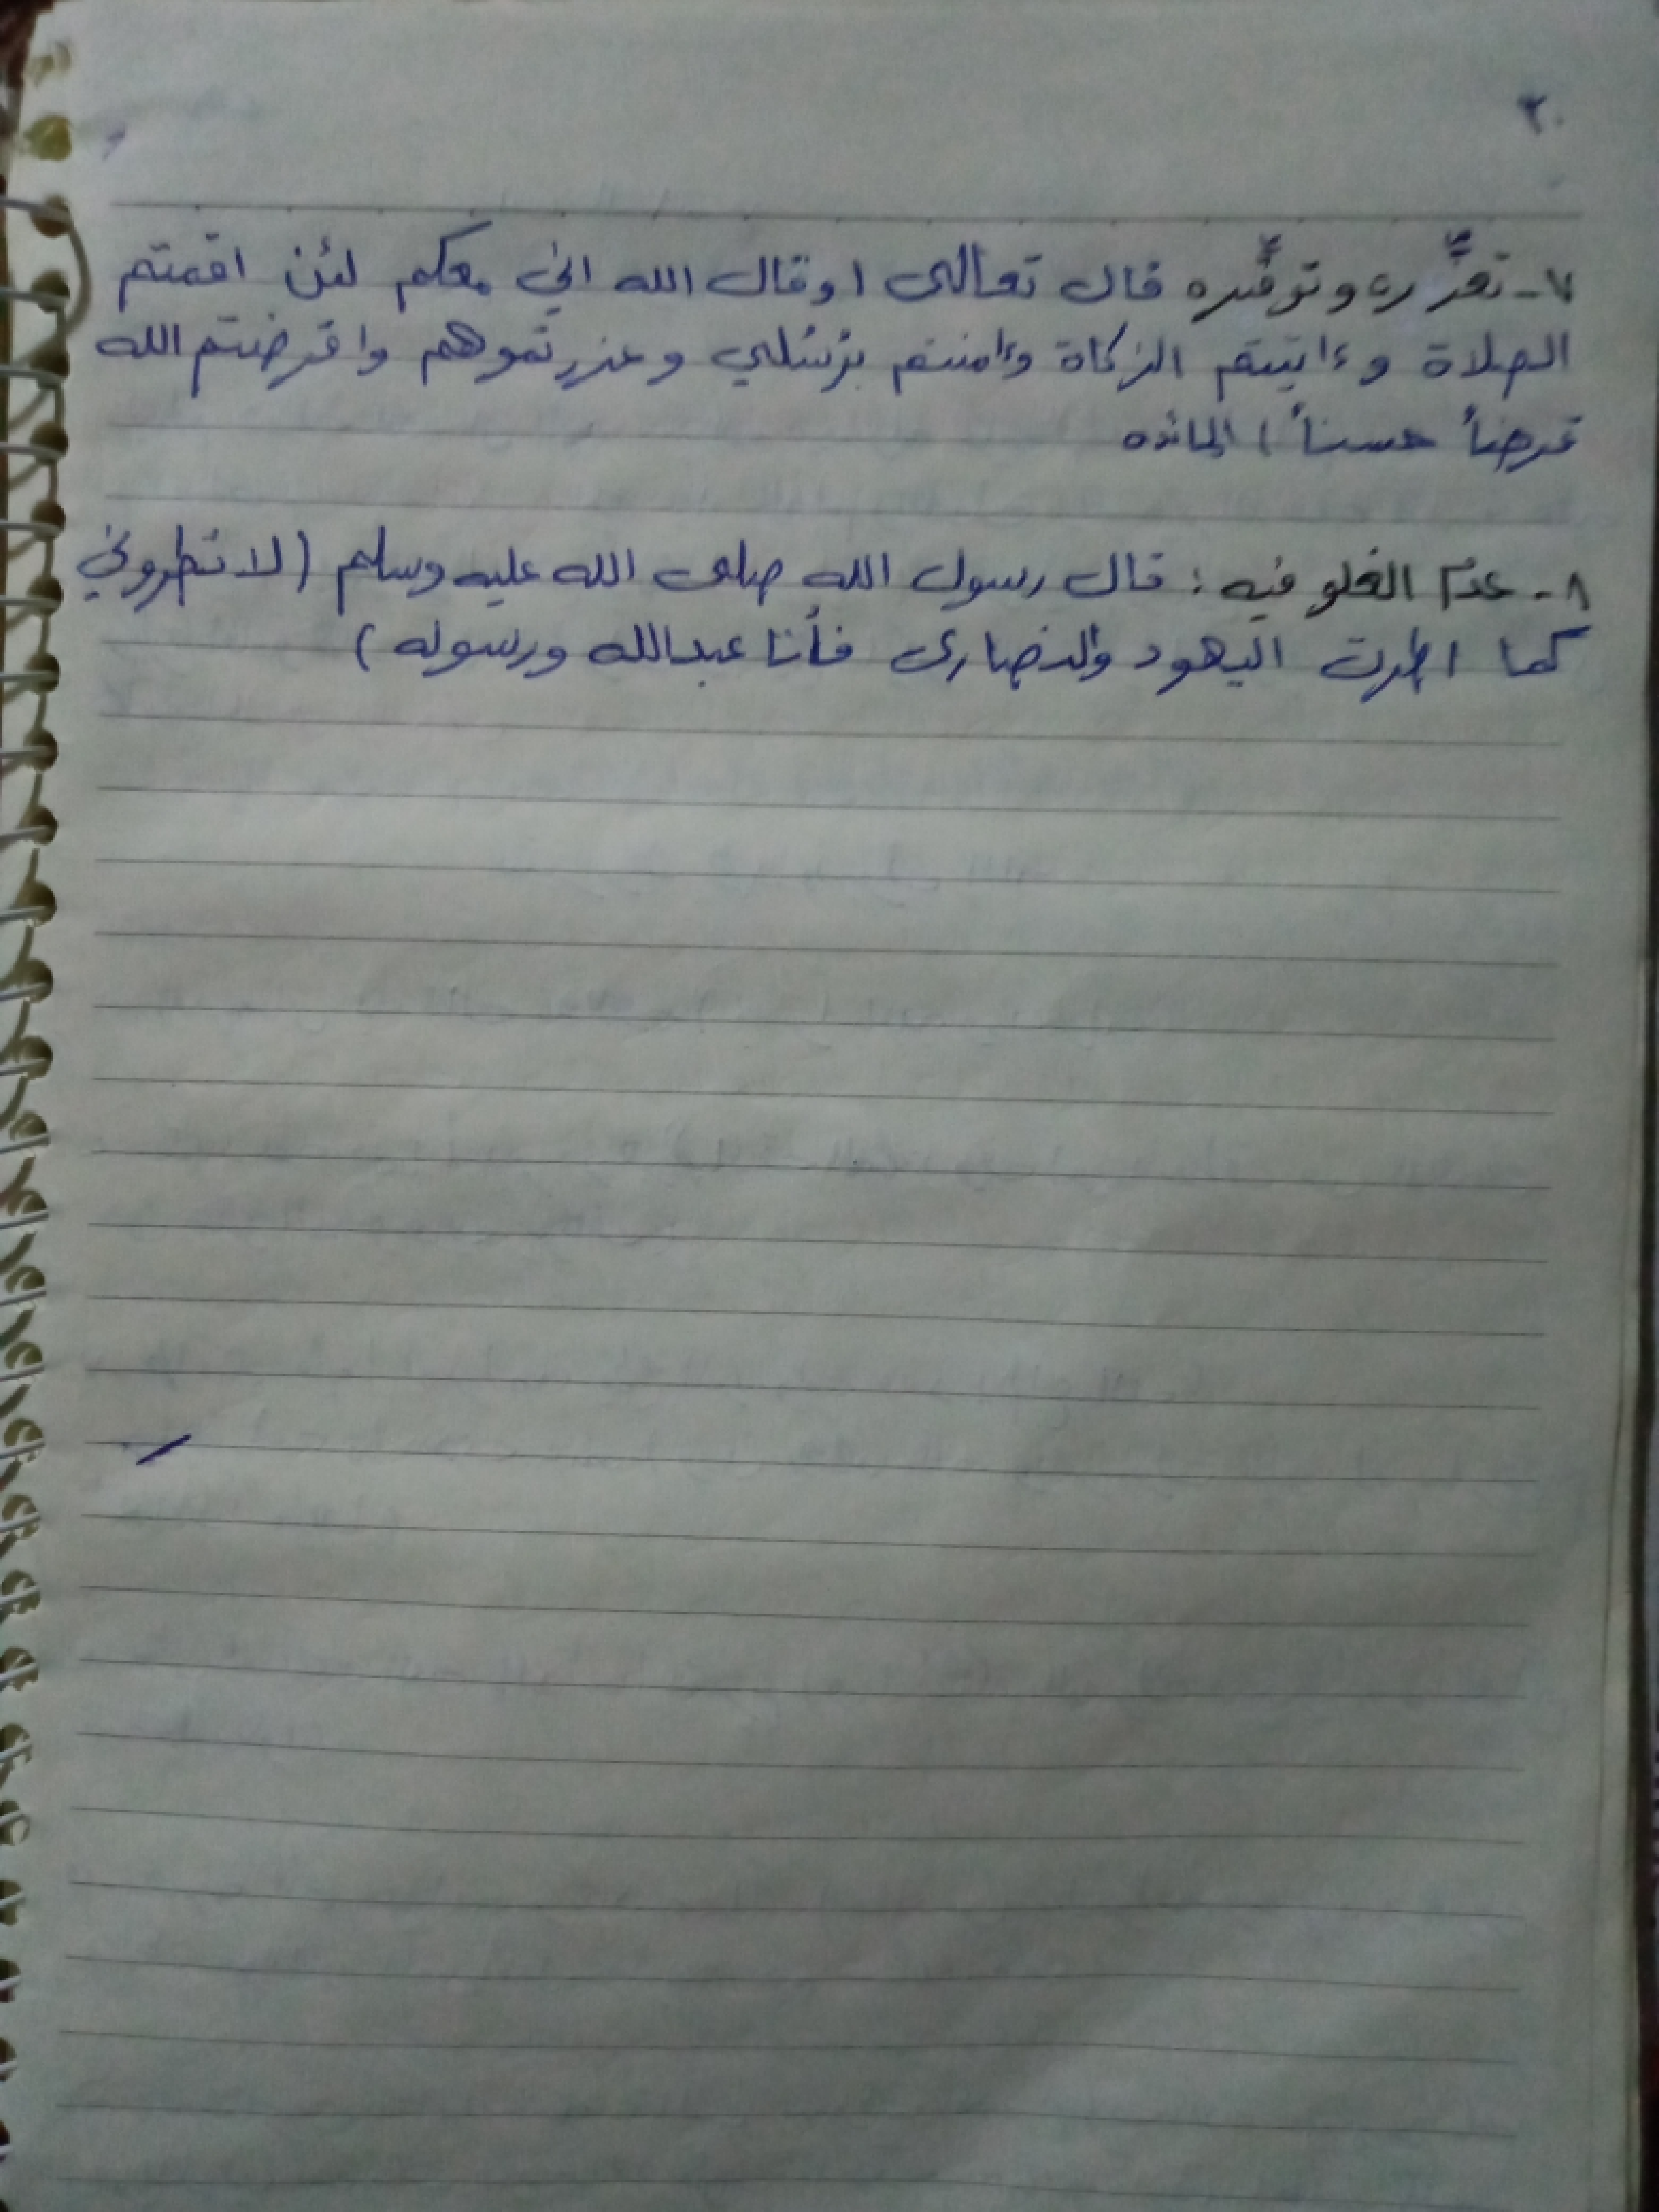 ٢٠
٧- تعزّره وتوقّره قال تعالى (وقال الله اني معكم لئن اقمتم
الصلاة وءاتيتم الزكاة وءامنتم برسلي وعزرتموهم واقرضتم الله
قرضاً حسناً) المائده
٨- عدم الغلو فيه: قال رسول الله صلى الله عليه وسلم (لا تطروني
كما اطرت اليهود والنصارى فأنا عبدالله ورسوله)